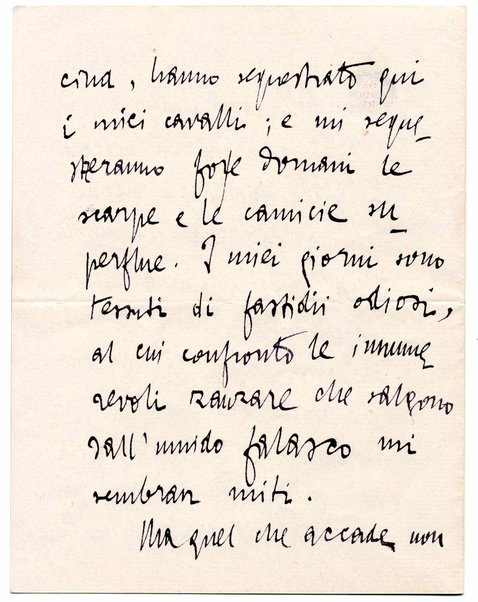 cina, hanno sequestrato qui
i miei cavalli; e mi seque-
streranno forse domani le
scarpe e le camicie su-
perflue. I miei giorni sono
tessuti di fastidii odiosi,
al cui confronto le innume-
revoli zanzare che salgono
dall'umido falasco mi
sembran miti.
Ma quel che accade non